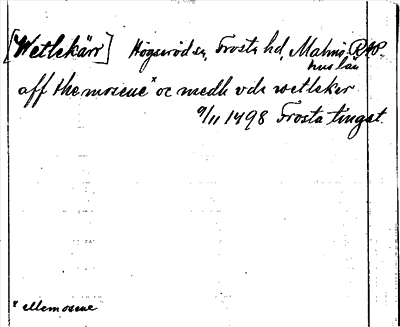 [Wetlekärr] Högseröd sn, Frosta hd, Malmö
hus län
aff the mosene x oc medh vde wetleker
9/11 1498 Frosta tingst.
x ellemosene